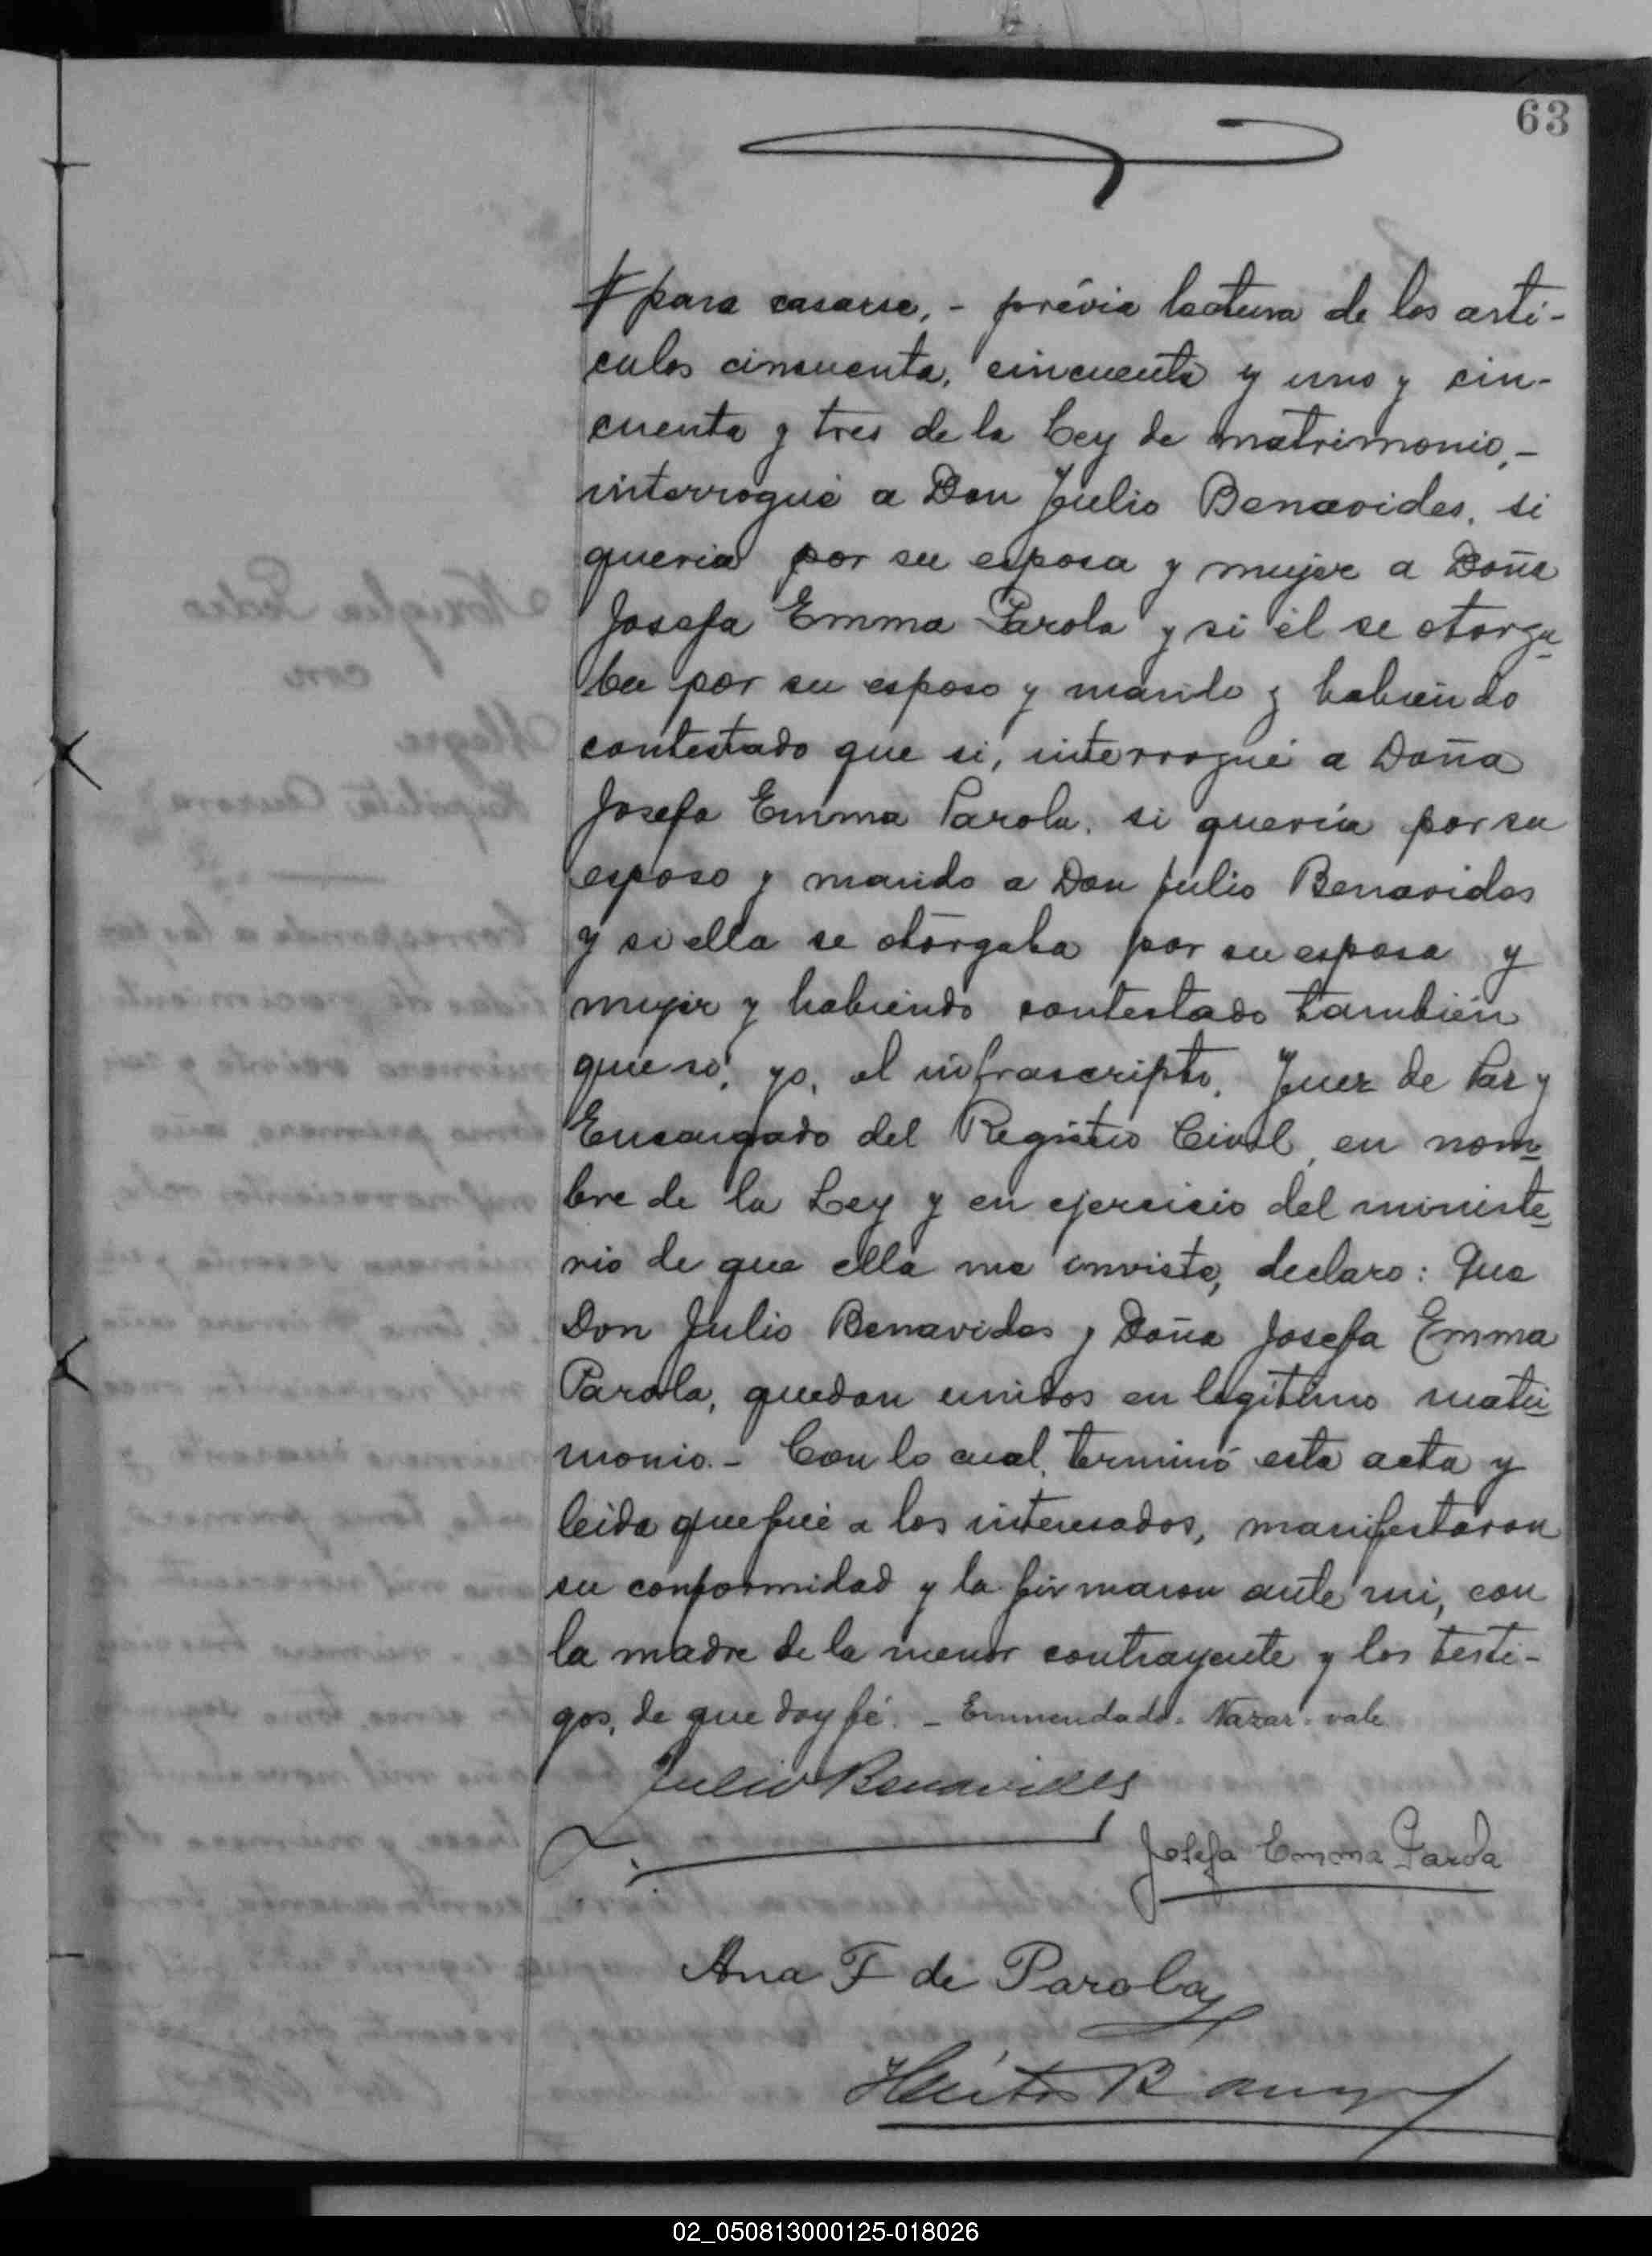 63
para casarse, - prévia lectura de los artí-
culos cincuenta, cincuenta y uno y cin-
cuenta y tres de la Ley de matrimonio, -
interrogué a Don Julio Benavides, si
queria por su esposa y mujer a Doña
Josefa Emma Parola y si él se otorga
ba por su esposo y marido y habiendo
contestado que si, interrogué a Doña
Josefa Emma Parola, si quería por su
esposo y marido a Don Julio Benavides
y si ella se otorgaba por su esposa y
mujer y habiendo contestado también
que si, yo, el infrascripto, Juez de Paz y
Encargado del Registro Civil, en nom
bre de la Ley y en ejercicio del ministe
rio de que ella me inviste, declaro: Que
Don Julio Benavides y Doña Josefa Emma
Parola, quedan unidos en legítimo matri
monio. - Con lo cual, terminó esta acta y
leida que fué a los interesados, manifestaron
su conformidad y la firmaron ante mi, con
la madre de la menor contrayente y los testi-
gos, de que doy fé. - Enmendado - Nazar - vale
Julio Benavides
Josefa Emma Parola
Ana F de Parola
02_050813000125-018026